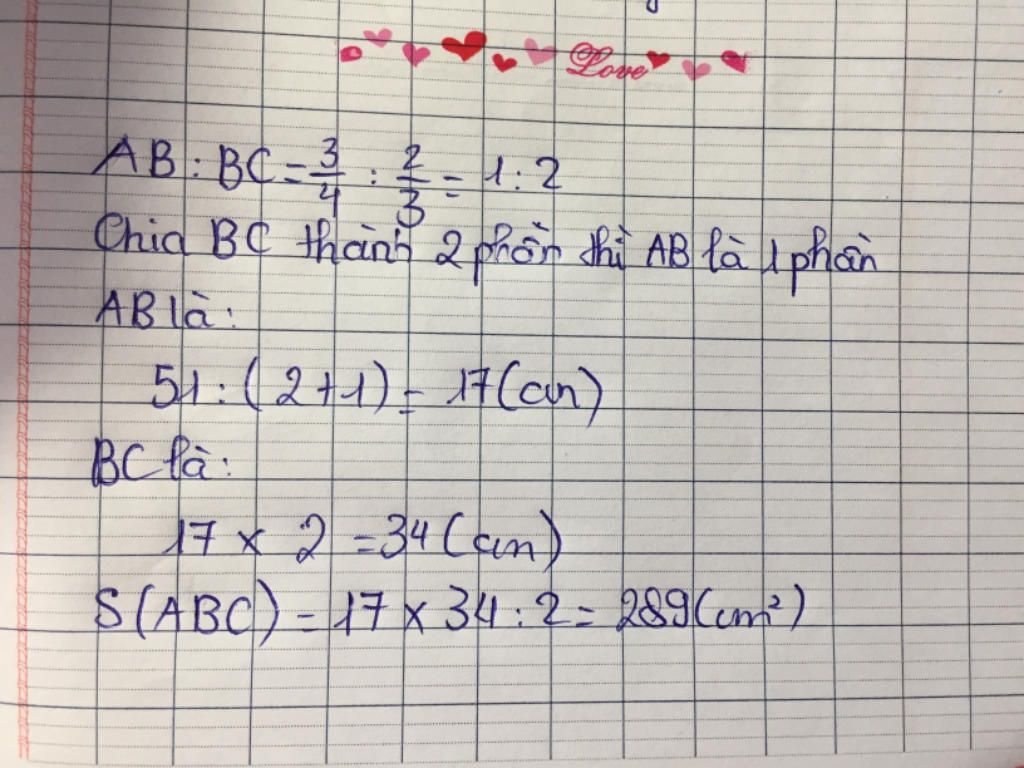 Love
AB : BC = 3/4 : 2/3 = 1 : 2
Chia BC thành 2 phần thì AB là 1 phần
AB là:
51 : (2+1) = 17 (cm)
BC là:
17 x 2 = 34 (cm)
S(ABC) = 17 x 34 : 2 = 289 (cm²)